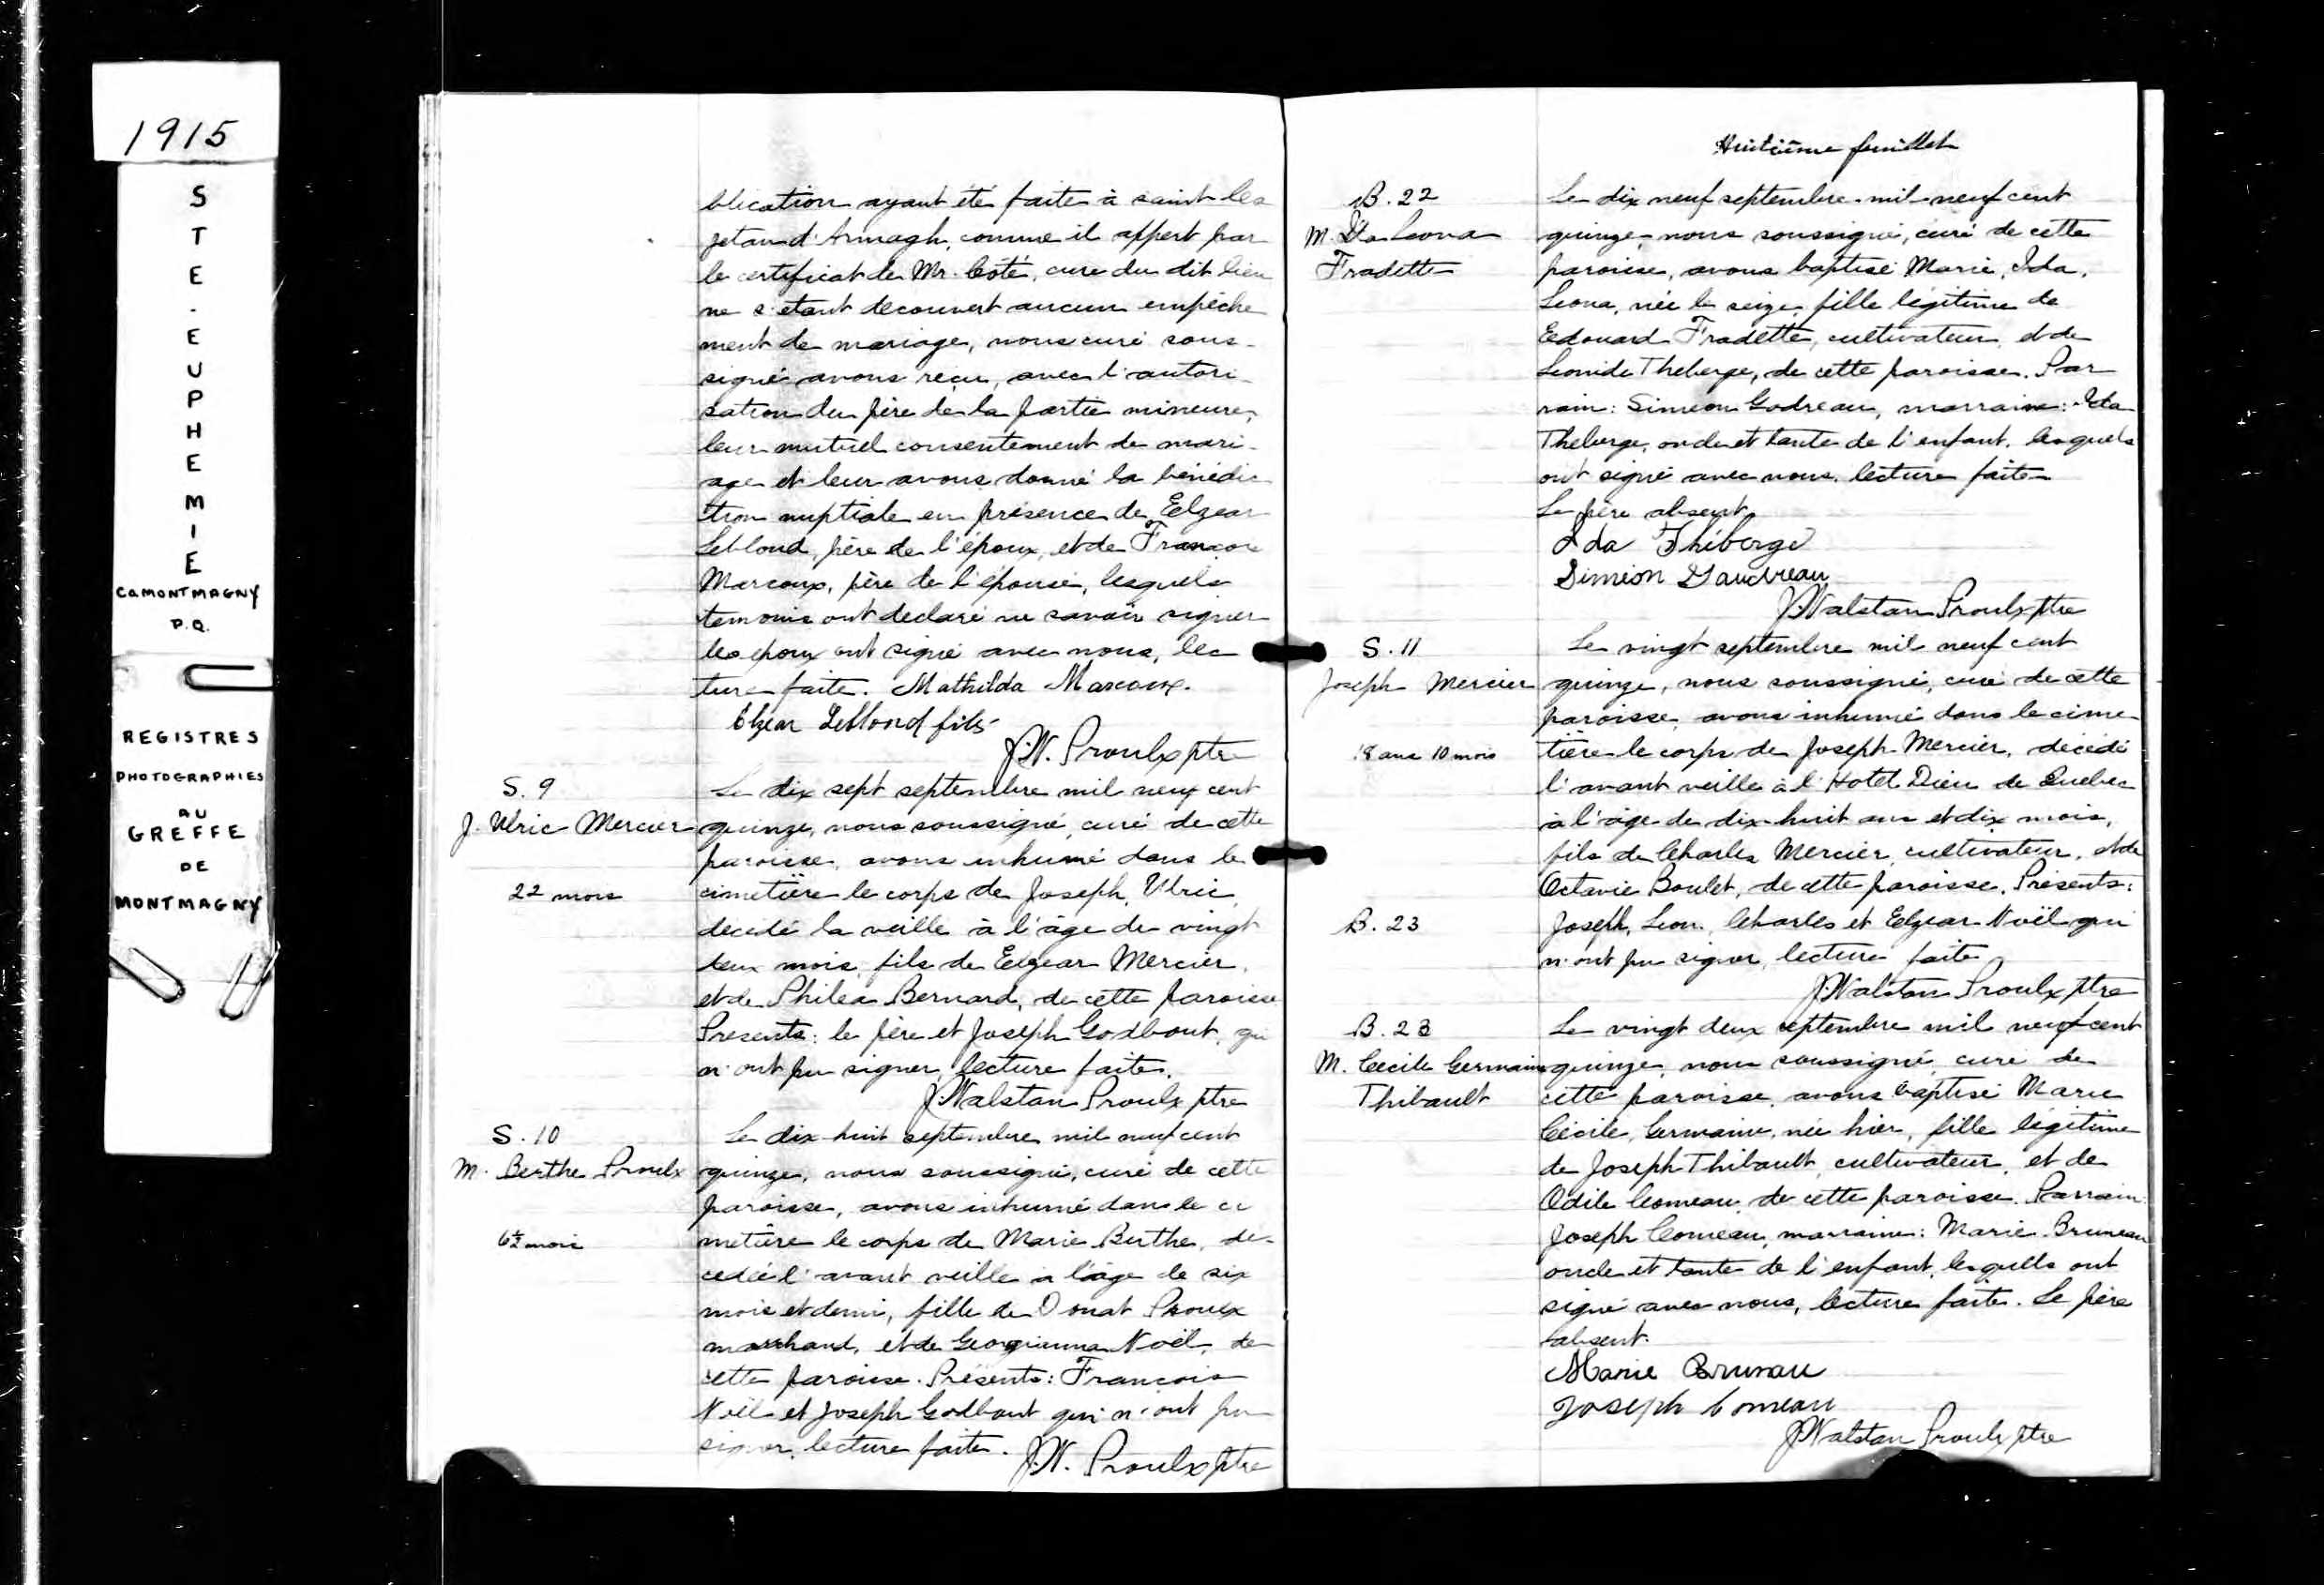 1915
STE. EUPHEMIE
CO MONTMAGNY
P.Q.
REGISTRES
PHOTOGRAPHIES
AU
GREFFE
DE
MONTMAGNY
blication ayant été faite à saint Ca
jetan d'Armagh, comme il appert par
le certificat de Mr. Coté, curé du dit lieu
ne s'etant decouvert aucun empêche
ment de mariage, nous curé sous-
signé avons reçu, avec l'autori-
sation du père de la partie mineure,
leur mutuel consentement de mari-
age et leur avons donné la bénédic
tion nuptiale en présence de Elzear
Leblond, père de l'époux, et de François
Marcoux, père de l'épouse, lesquels
temoins ont declaré ne savoir signer
les epoux ont signé avec nous, lec
ture faite. Mathilda Marcoux.
Elzear Leblond fils
J.W. Proulx ptre
S. 9
J. Ulric Mercier
22 mois
Le dix sept septembre mil neuf cent
quinze, nous soussigné, curé de cette
paroisse, avons inhumé dans le
cimetière le corps de Joseph, Ulric,
decedé la veille à l'âge de vingt
deux mois, fils de Elzear Mercier,
et de Philea Bernard, de cette paroisse
Presents: le père et Joseph Godbout, qui
n'ont pu signer, lecture faite.
J.Walstan Proulx ptre
S. 10
M. Berthe Proulx
6½ mois
Le dix-huit septembre mil neuf cent
quinze, nous soussigné, curé de cette
paroisse, avons inhumé dans le ci
metière le corps de Marie Berthe, de-
cedée l'avant veille a l'âge de six
mois et demi, fille de Donat Proulx
marchand, et de Georgianna Noël, de
cette paroisse. Présents: François
Noël et Joseph Godbout qui n'ont pu
signer, lecture faite.
J.W. Proulx ptre
Huitième feuillet
B. 22
M. Ida Leona
Fradette
Le dix neuf septembre mil-neuf cent
quinze, nous soussigné, curé de cette
paroisse, avons baptisé Marie, Ida,
Leona, née le seize, fille légitime de
Edouard Fradette, cultivateur, et de
Leonide Theberge, de cette paroisse. Par
rain: Simeon Godreau, marraine: Ida
Theberge, oncle et tante de l'enfant, lesquels
ont signé avec nous, lecture faite
Le père absent.
Ida Théberge
Siméon Gaudreau
J.Walstan Proulx ptre
S. 11
Joseph Mercier
18 ans 10 mois
Le vingt septembre mil neuf cent
quinze, nous soussigné, curé de cette
paroisse, avons inhumé dans le cime-
tière le corps de Joseph Mercier, décédé
l'avant veille à l'Hotel Dieu de Quebec
à l'âge de dix-huit ans et dix mois,
fils de Charles Mercier, cultivateur, et de
Octavie Boulet, de cette paroisse. Présents:
B. 23
Joseph, Leon, Charles et Elzear Noël qui
n'ont pu signer, lecture faite
J.Walstan Proulx ptre
B. 23
M. Cecile Germaine
Thibault
Le vingt deux septembre mil neuf cent
quinze, nous soussigné, curé de
cette paroisse, avons baptisé Marie
Cécile, Germaine, née hier, fille légitime
de Joseph Thibault, cultivateur, et de
Odile Comeau, de cette paroisse. Parrain:
Joseph Comeau, marraine: Marie Bruneau
oncle et tante de l'enfant, lesquels ont
signé avec nous, lecture faite. Le père
absent.
Marie Bruneau
Joseph Comeau
J.Walstan Proulx ptre